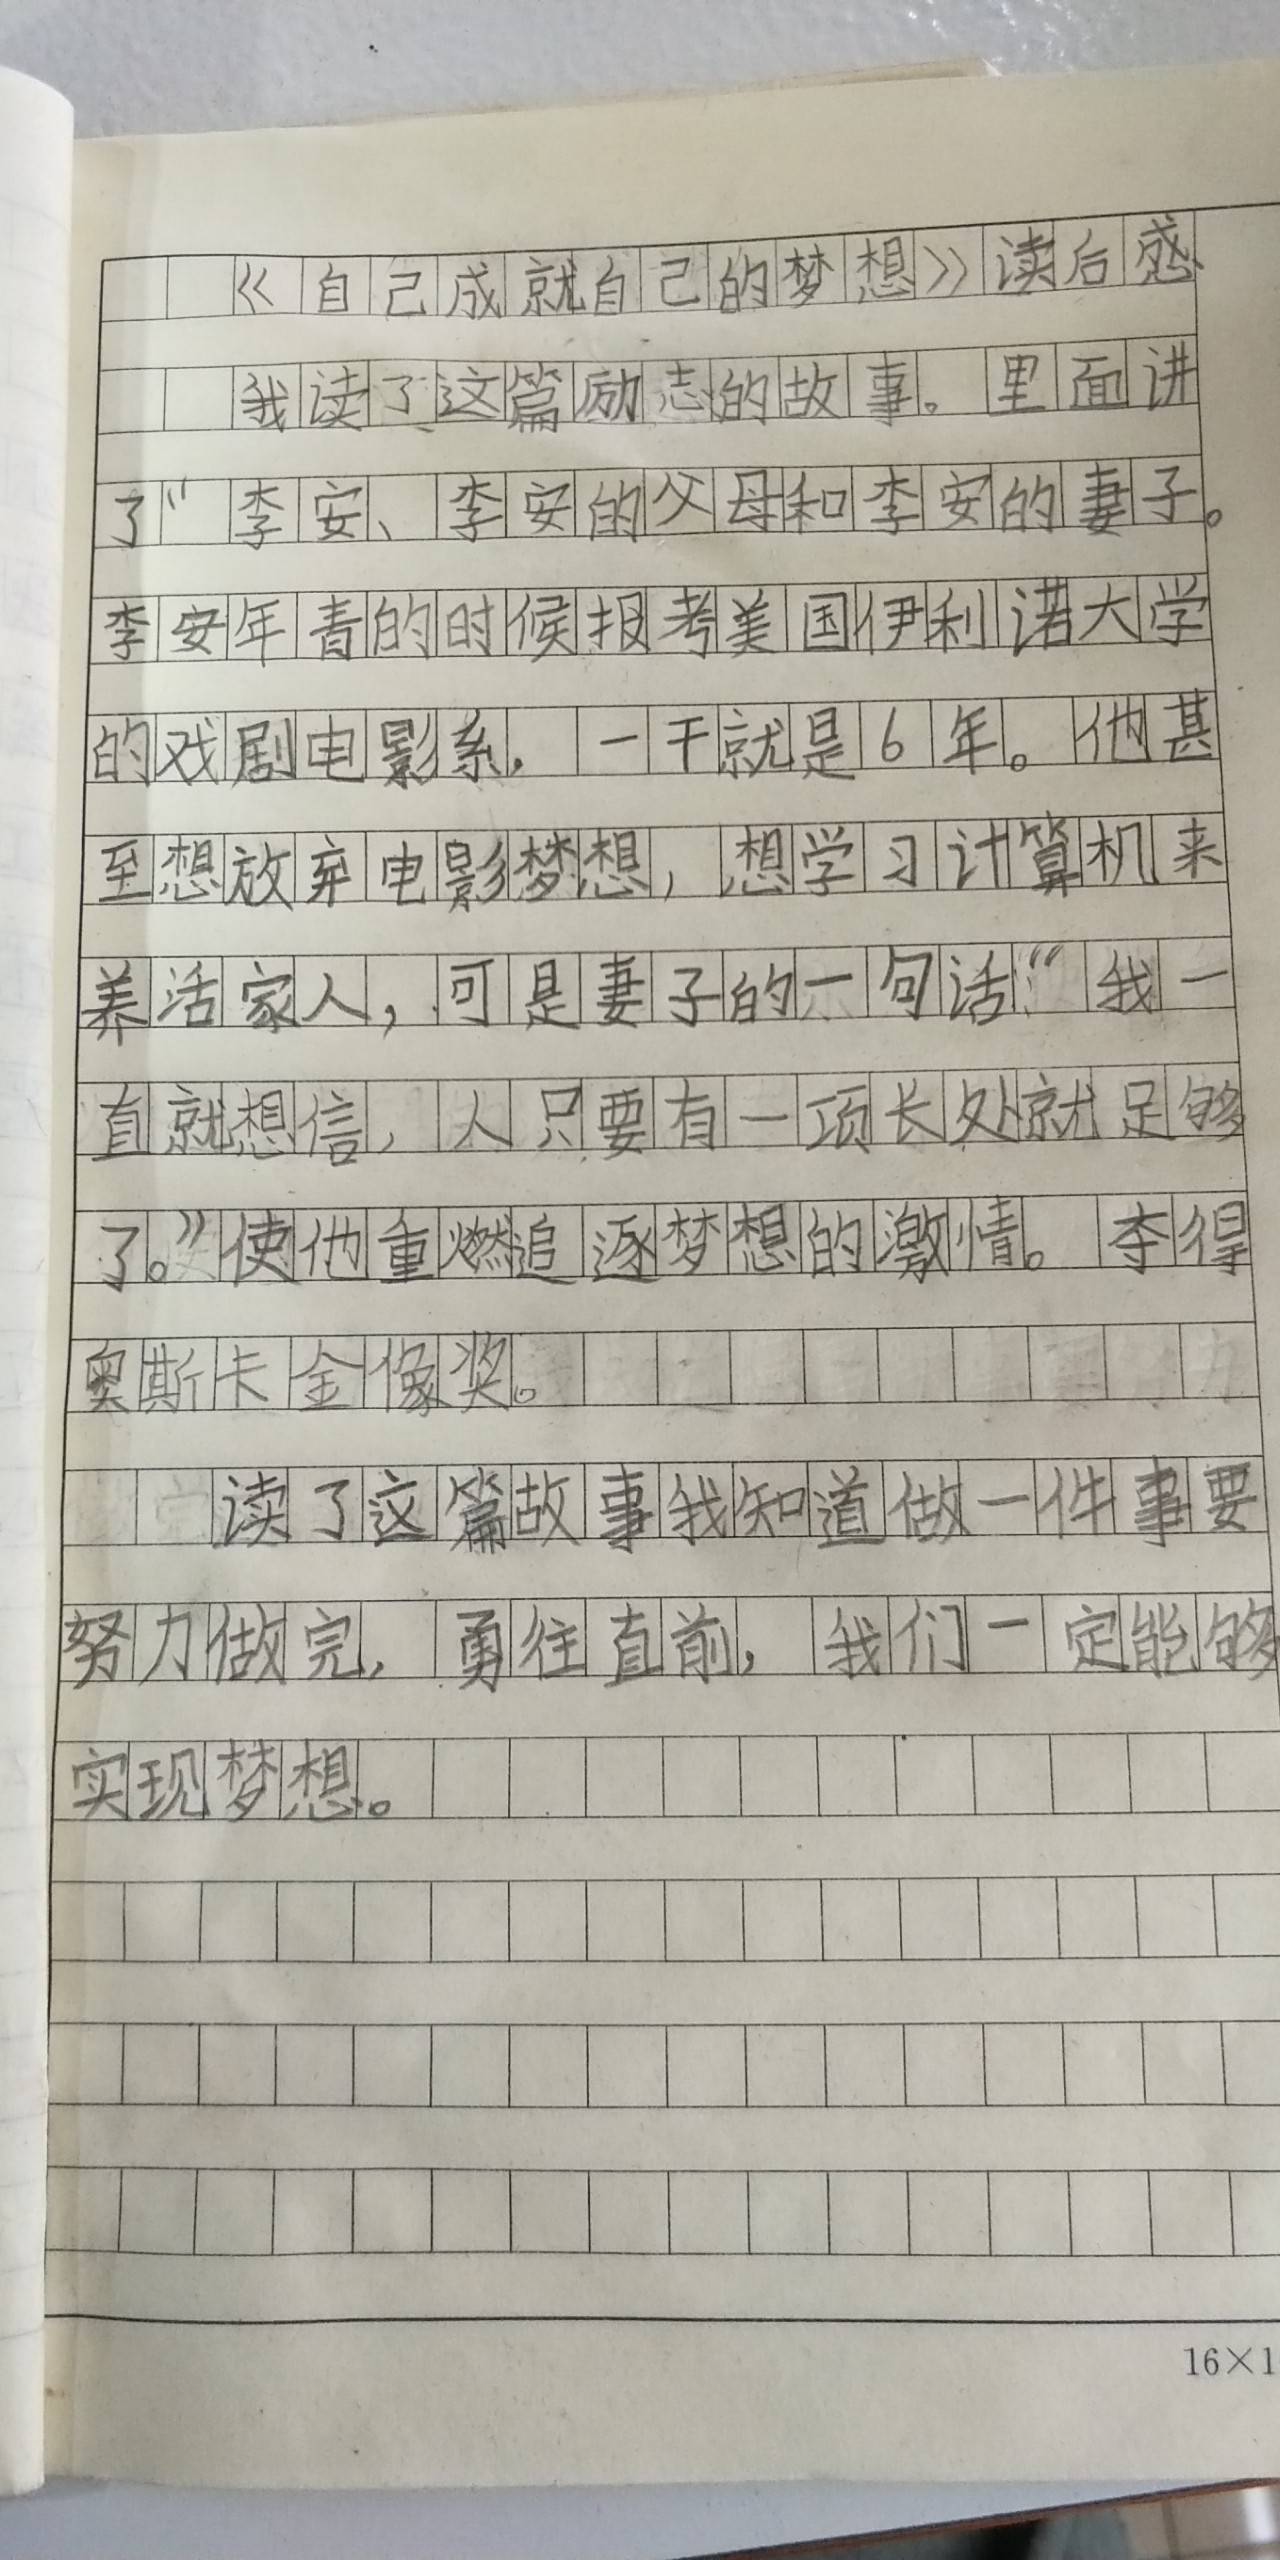 《自己成就自己的梦想》读后感
我读了这篇励志的故事。里面讲
了“李安、李安的父母和李安的妻子。
李安年青的时候报考美国伊利诺大学
的戏剧电影系，一干就是6年。他甚
至想放弃电影梦想，想学习计算机来
养活家人，可是妻子的一句话：“我一
直就想信，人只要有一项长处就足够
了。”使他重燃追逐梦想的激情。夺得
奥斯卡金像奖。
读了这篇故事我知道做一件事要
努力做完，勇往直前，我们一定能够
实现梦想。
16×1